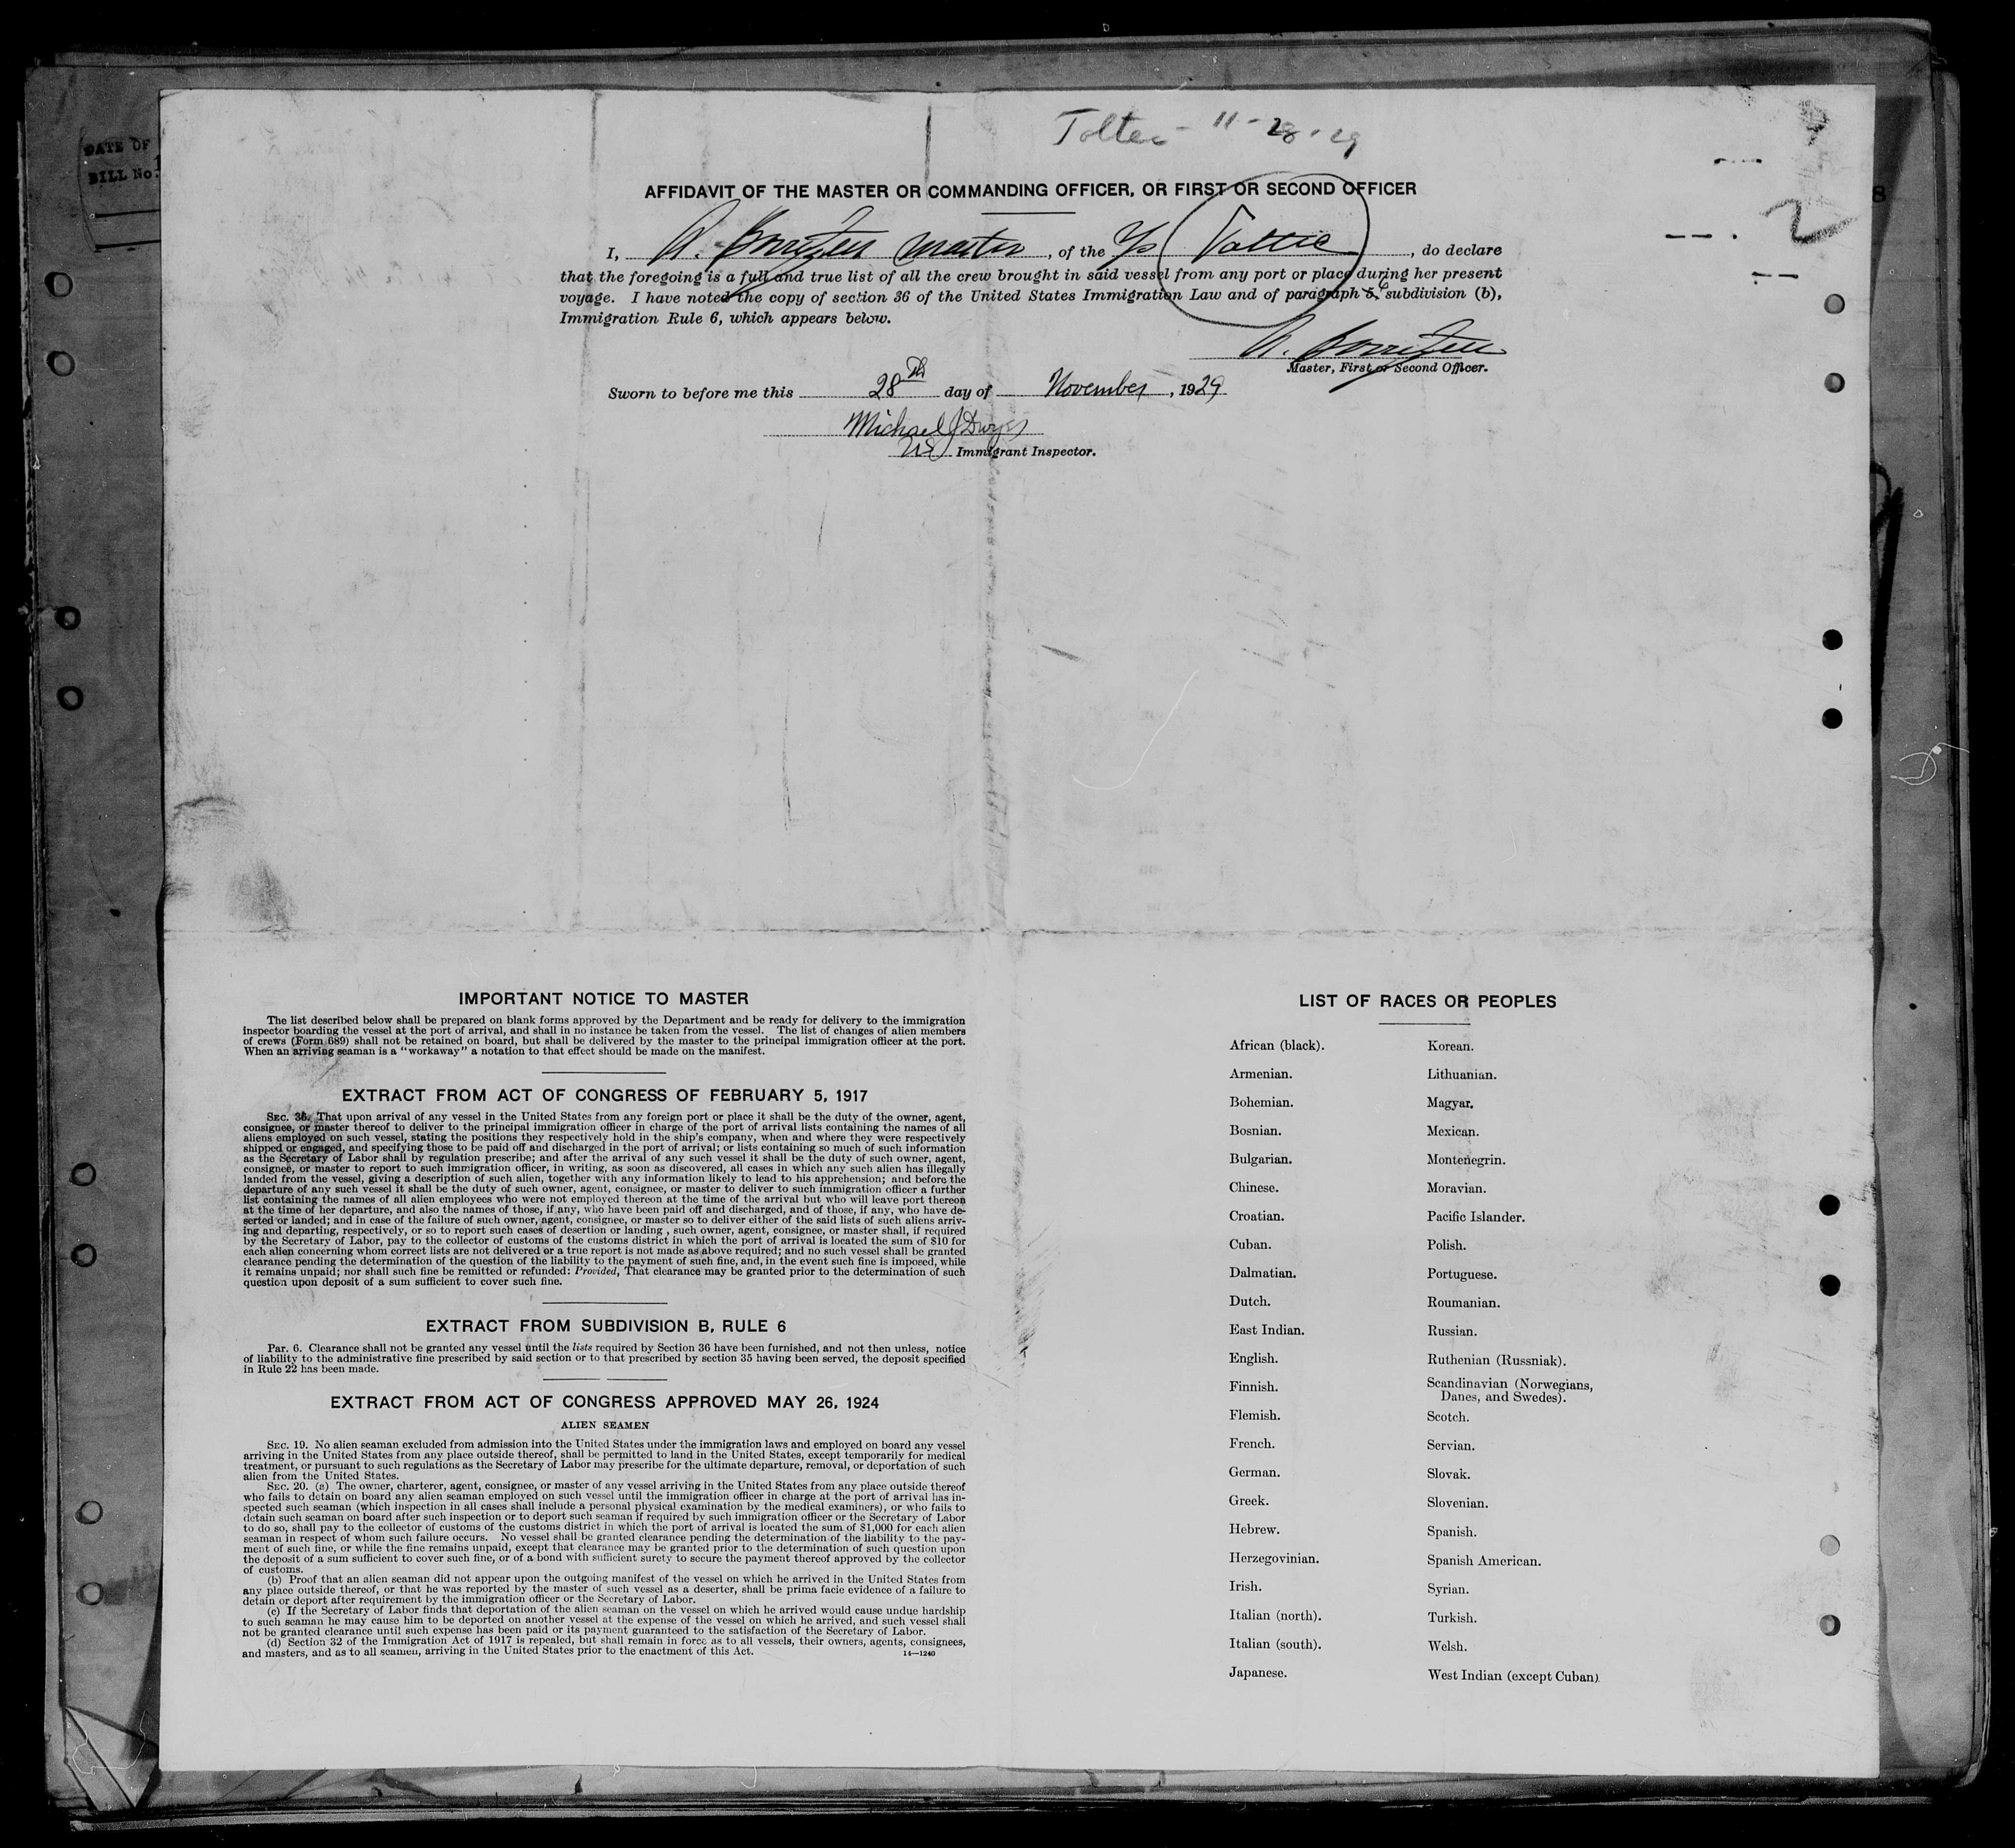 DATE OF
BILL No.
Toltec - 11-28-29
2
8
AFFIDAVIT OF THE MASTER OR COMMANDING OFFICER, OR FIRST OR SECOND OFFICER
I, A. master, of the Toltec, do declare
that the foregoing is a full and true list of all the crew brought in said vessel from any port or place during her present
voyage. I have noted the copy of section 36 of the United States Immigration Law and of paragraph 5, 6 subdivision (b),
Immigration Rule 6, which appears below.
A.
Master, First or Second Officer.
Sworn to before me this 28th day of November, 1929
Michael J Dwyer
US Immigrant Inspector.
IMPORTANT NOTICE TO MASTER
The list described below shall be prepared on blank forms approved by the Department and be ready for delivery to the immigration
inspector boarding the vessel at the port of arrival, and shall in no instance be taken from the vessel. The list of changes of alien members
of crews (Form 689) shall not be retained on board, but shall be delivered by the master to the principal immigration officer at the port.
When an arriving seaman is a "workaway" a notation to that effect should be made on the manifest.
EXTRACT FROM ACT OF CONGRESS OF FEBRUARY 5, 1917
SEC. 36. That upon arrival of any vessel in the United States from any foreign port or place it shall be the duty of the owner, agent,
consignee, or master thereof to deliver to the principal immigration officer in charge of the port of arrival lists containing the names of all
aliens employed on such vessel, stating the positions they respectively hold in the ship's company, when and where they were respectively
shipped or engaged, and specifying those to be paid off and discharged in the port of arrival; or lists containing so much of such information
as the Secretary of Labor shall by regulation prescribe; and after the arrival of any such vessel it shall be the duty of such owner, agent,
consignee, or master to report to such immigration officer, in writing, as soon as discovered, all cases in which any such alien has illegally
landed from the vessel, giving a description of such alien, together with any information likely to lead to his apprehension; and before the
departure of any such vessel it shall be the duty of such owner, agent, consignee, or master to deliver to such immigration officer a further
list containing the names of all alien employees who were not employed thereon at the time of the arrival but who will leave port thereon
at the time of her departure, and also the names of those, if any, who have been paid off and discharged, and of those, if any, who have de-
serted or landed; and in case of the failure of such owner, agent, consignee, or master so to deliver either of the said lists of such aliens arriv-
ing and departing, respectively, or so to report such cases of desertion or landing , such owner, agent, consignee, or master shall, if required
by the Secretary of Labor, pay to the collector of customs of the customs district in which the port of arrival is located the sum of $10 for
each alien concerning whom correct lists are not delivered or a true report is not made as above required; and no such vessel shall be granted
clearance pending the determination of the question of the liability to the payment of such fine, and, in the event such fine is imposed, while
it remains unpaid; nor shall such fine be remitted or refunded: Provided, That clearance may be granted prior to the determination of such
question upon deposit of a sum sufficient to cover such fine.
EXTRACT FROM SUBDIVISION B, RULE 6
Par. 6. Clearance shall not be granted any vessel until the lists required by Section 36 have been furnished, and not then unless, notice
of liability to the administrative fine prescribed by said section or to that prescribed by section 35 having been served, the deposit specified
in Rule 22 has been made.
EXTRACT FROM ACT OF CONGRESS APPROVED MAY 26, 1924
ALIEN SEAMEN
SEC. 19. No alien seaman excluded from admission into the United States under the immigration laws and employed on board any vessel
arriving in the United States from any place outside thereof, shall be permitted to land in the United States, except temporarily for medical
treatment, or pursuant to such regulations as the Secretary of Labor may prescribe for the ultimate departure, removal, or deportation of such
alien from the United States.
SEC. 20. (a) The owner, charterer, agent, consignee, or master of any vessel arriving in the United States from any place outside thereof
who fails to detain on board any alien seaman employed on such vessel until the immigration officer in charge at the port of arrival has in-
spected such seaman (which inspection in all cases shall include a personal physical examination by the medical examiners), or who fails to
detain such seaman on board after such inspection or to deport such seaman if required by such immigration officer or the Secretary of Labor
to do so, shall pay to the collector of customs of the customs district in which the port of arrival is located the sum of $1,000 for each alien
seaman in respect of whom such failure occurs. No vessel shall be granted clearance pending the determination of the liability to the pay-
ment of such fine, or while the fine remains unpaid, except that clearance may be granted prior to the determination of such question upon
the deposit of a sum sufficient to cover such fine, or of a bond with sufficient surety to secure the payment thereof approved by the collector
of customs.
(b) Proof that an alien seaman did not appear upon the outgoing manifest of the vessel on which he arrived in the United States from
any place outside thereof, or that he was reported by the master of such vessel as a deserter, shall be prima facie evidence of a failure to
detain or deport after requirement by the immigration officer or the Secretary of Labor.
(c) If the Secretary of Labor finds that deportation of the alien seaman on the vessel on which he arrived would cause undue hardship
to such seaman he may cause him to be deported on another vessel at the expense of the vessel on which he arrived, and such vessel shall
not be granted clearance until such expense has been paid or its payment guaranteed to the satisfaction of the Secretary of Labor.
(d) Section 32 of the Immigration Act of 1917 is repealed, but shall remain in force as to all vessels, their owners, agents, consignees,
and masters, and as to all seamen, arriving in the United States prior to the enactment of this Act.
14—1240
LIST OF RACES OR PEOPLES
African (black). Korean.
Armenian. Lithuanian.
Bohemian. Magyar.
Bosnian. Mexican.
Bulgarian. Montenegrin.
Chinese. Moravian.
Croatian. Pacific Islander.
Cuban. Polish.
Dalmatian. Portuguese.
Dutch. Roumanian.
East Indian. Russian.
English. Ruthenian (Russniak).
Finnish. Scandinavian (Norwegians,
Danes, and Swedes).
Flemish. Scotch.
French. Servian.
German. Slovak.
Greek. Slovenian.
Hebrew. Spanish.
Herzegovinian. Spanish American.
Irish. Syrian.
Italian (north). Turkish.
Italian (south). Welsh.
Japanese. West Indian (except Cuban)